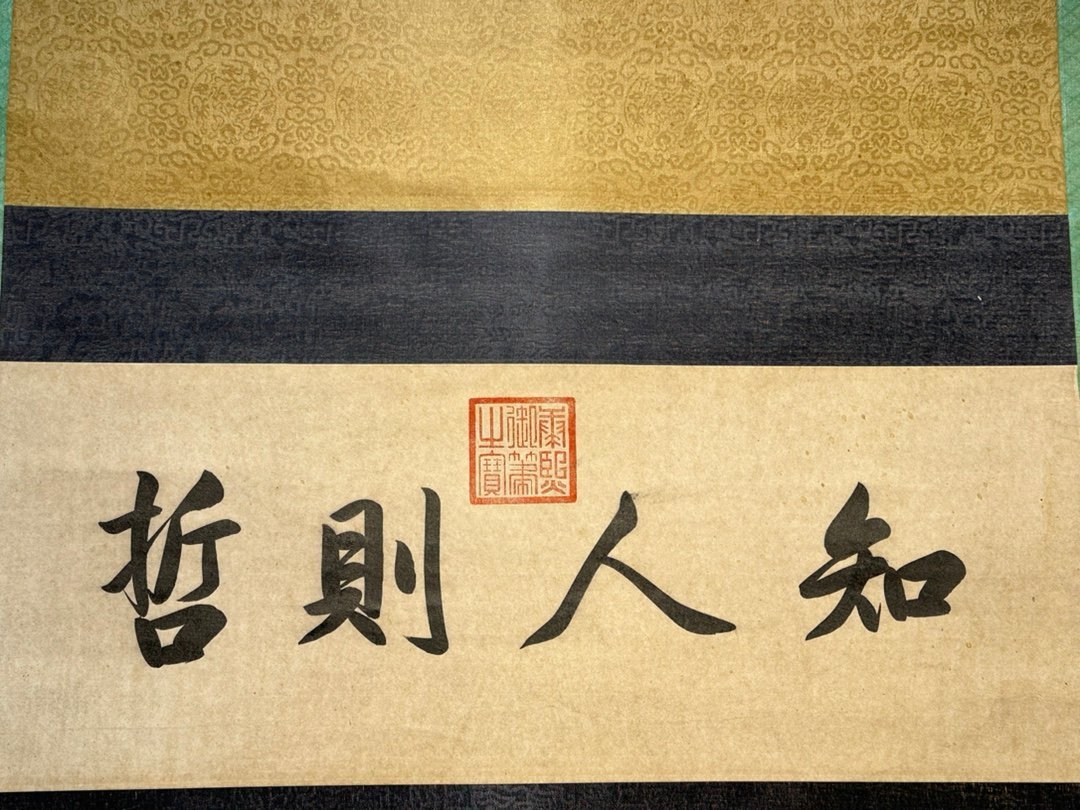 知人則哲
康熙
御筆
之寶